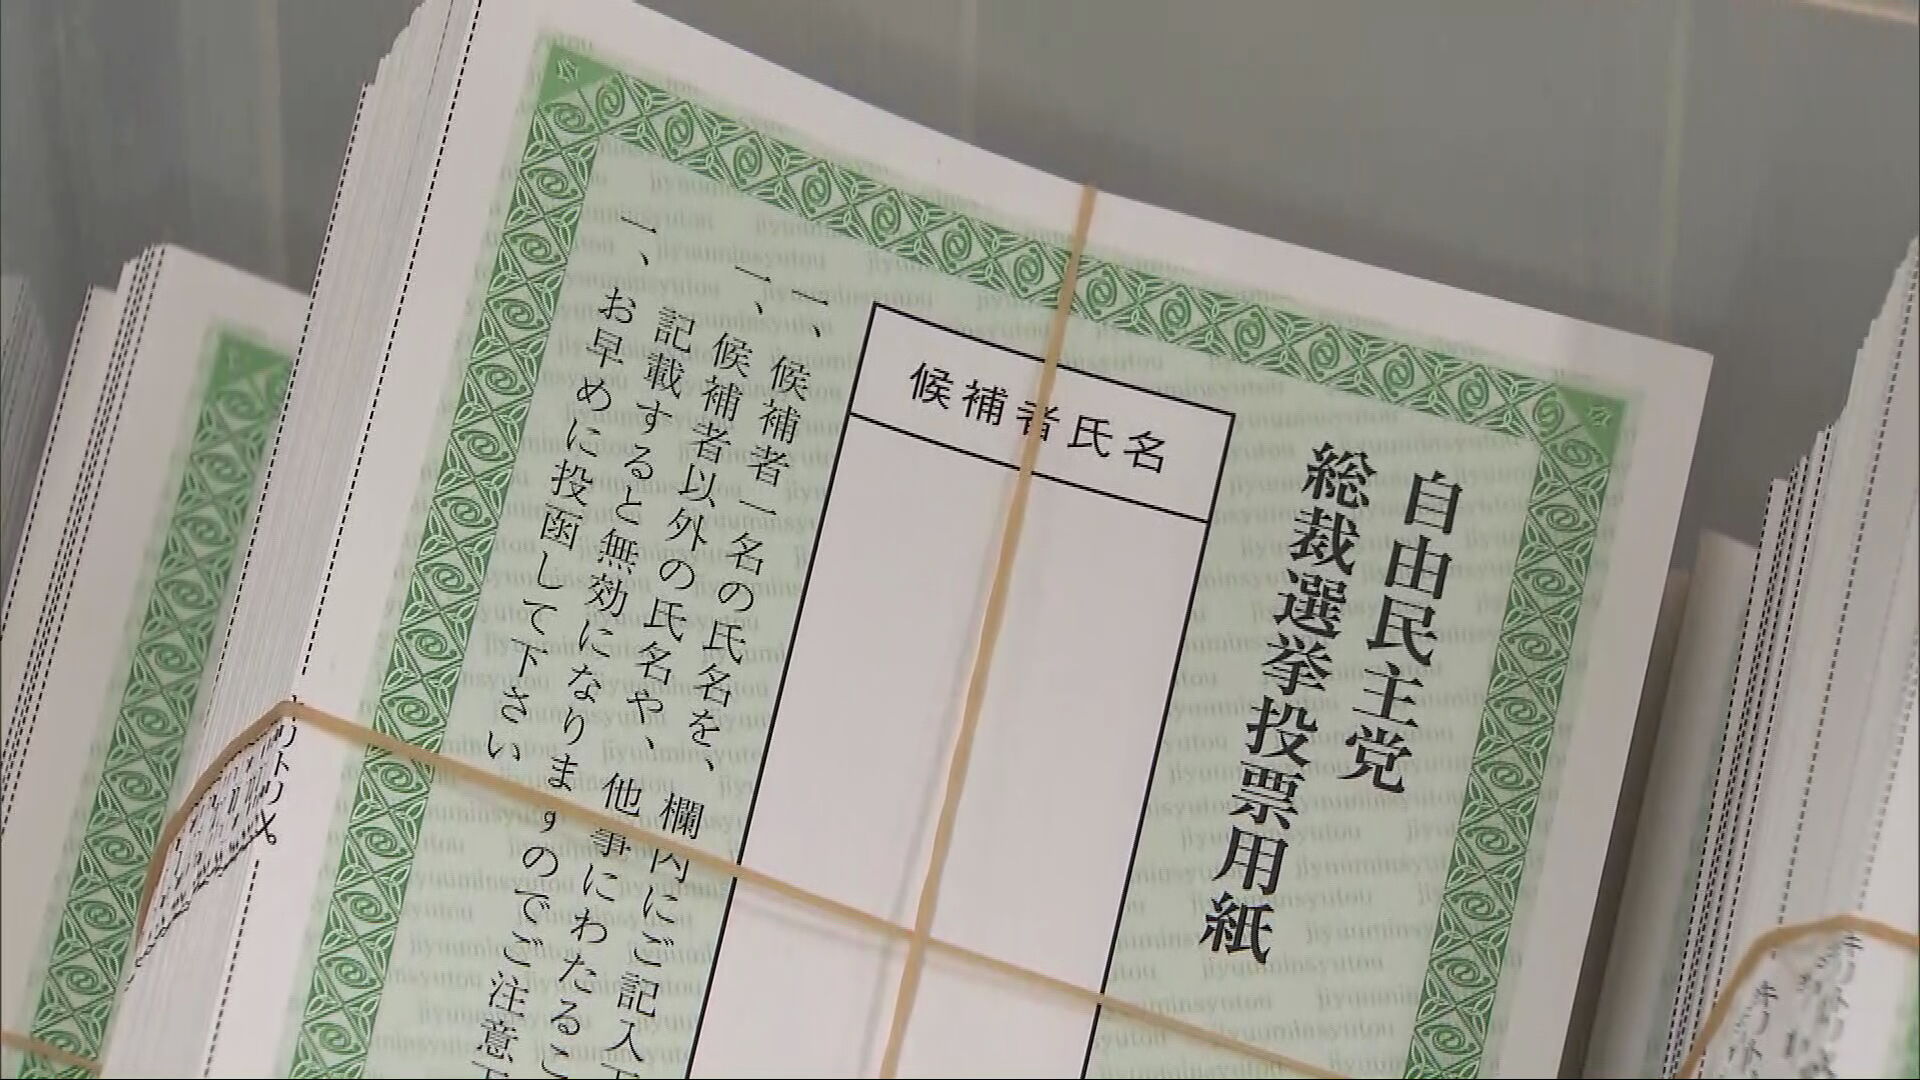 自由民主党
総裁選挙投票用紙
候補者氏名
一、候補者一名の氏名を、欄内にご記入下
一、候補者以外の氏名や、他事にわたるこ
記載すると無効になりますのでご注意下
一、お早めに投函して下さい
jiyuuminsyutou
キリトリ